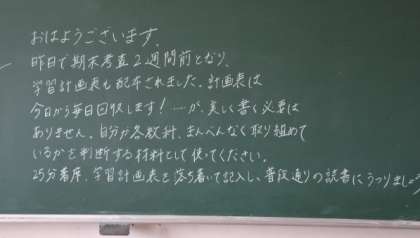 おはようございます。
昨日で期末考査2週間前となり、
学習計画表も配布されました。計画表は
今日から毎日回収します!……が、美しく書く必要は
ありません。自分が各教科、まんべんなく取り組めて
いるかを判断する材料として使ってください。
25分着席、学習計画表を落ち着いて記入し、普段通りの読書にうつりましょう